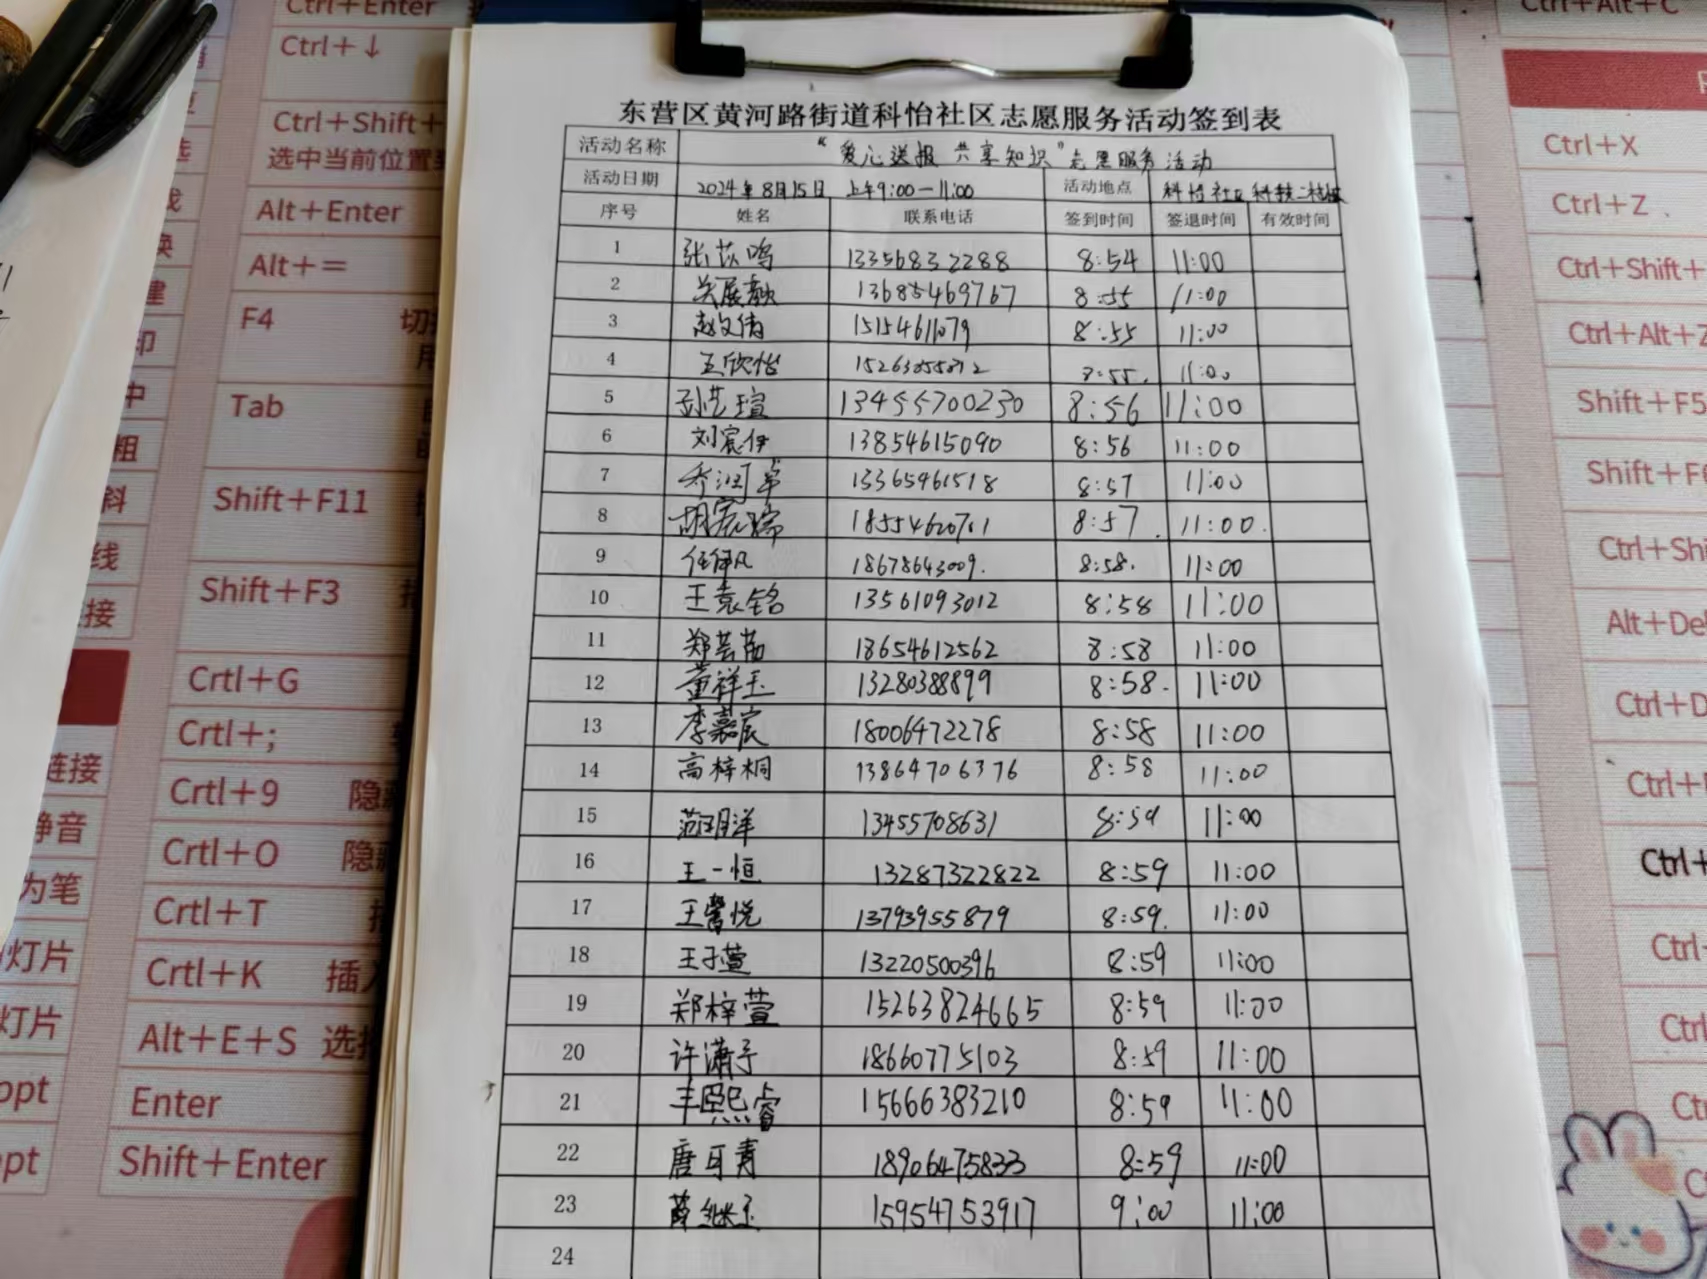 Ctrl+Enter
Ctrl+↓
Ctrl+Shift+
选中当前位置到
Alt+Enter
Alt+=
F4 切换
用
Tab
Shift+F11
Shift+F3
Crtl+G
Crtl+;
Crtl+9 隐藏
Crtl+O 隐藏
Crtl+T
Crtl+K 插入
Alt+E+S 选择
Enter
Shift+Enter
印
中
粗
斜
线
接
链接
静音
为笔
灯片
灯片
ppt
ppt
东营区黄河路街道科怡社区志愿服务活动签到表
活动名称 “爱心送报 共享知识”志愿服务活动
活动日期 2024年8月15日 上午9:00—11:00 活动地点 科怡社区
序号 姓名 联系电话 签到时间 签退时间 有效时间
1 张苡鸣 13356832288 8:54 11:00
2 13685469767 8:55 11:00
3 赵文倩 15154611079 8:55 11:00
4 王欣怡 8:55 11:00
5 孙艺瑄 13455700230 8:56 11:00
6 刘宸伊 13854615090 8:56 11:00
7 乔润卓 13365461518 8:57 11:00
8 胡宸瑞 18554620701 8:57 11:00
9 任伊凡 18678643009 8:58 11:00
10 王袁铭 13561093012 8:58 11:00
11 郑芸茜 18654612562 8:58 11:00
12 董祥玉 13280388899 8:58 11:00
13 李嘉宸 18006472278 8:58 11:00
14 高梓桐 13864706376 8:58 11:00
15 范玥洋 13455708631 8:59 11:00
16 王一恒 13287322822 8:59 11:00
17 王馨悦 13793955879 8:59 11:00
18 王子萱 13220500396 8:59 11:00
19 郑梓萱 15263824665 8:59 11:00
20 许潇予 18660775103 8:59 11:00
21 丰熙睿 15666383210 8:59 11:00
22 唐耳青 18906475833 8:59 11:00
23 薛继玉 15954753917 9:00 11:00
24
Ctrl+Alt+C
Ctrl+X
Ctrl+Z
Ctrl+Shift+
Ctrl+Alt+Z
Shift+F5
Shift+F
Ctrl+Shi
Alt+De
Ctrl+D
Ctrl+
Ctrl+
Ctrl+
Ctrl
Ctr